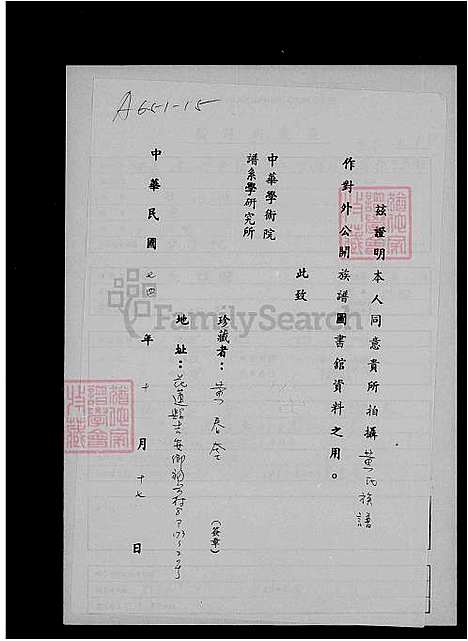 A651-15
茲證明本人同意貴所拍攝黃氏族譜
作對外公開族譜圖書館資料之用。
此致
中華學術院
譜系學研究所
珍藏者：黃春 (簽章)
地址：花蓮縣吉安鄉
中華民國七四年十月十七日
FamilySearch